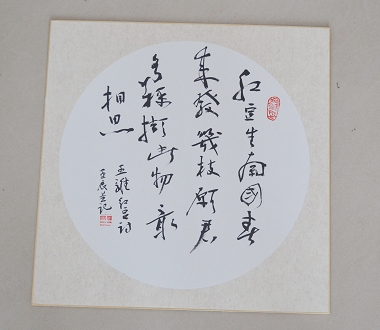 红豆生南國春
来發幾枝願君
多採擷此物最
相思
王維红豆詞